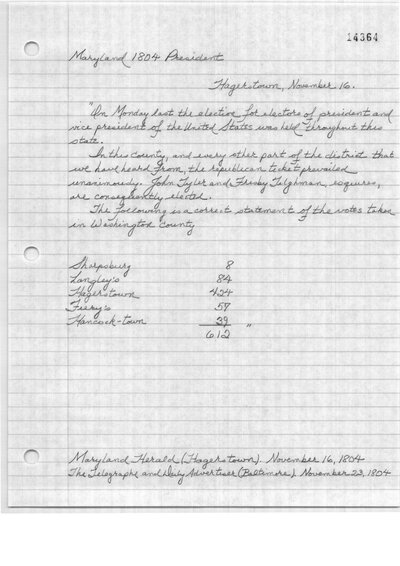 14364
Maryland 1804 President
Hagerstown, November 16.
"On Monday last the election for electors of president and
vice president of the United States was held throughout this
state.
In this County, and every other part of the district that
we have heard from, the republican ticket prevailed
unanimously. John Tyler and Frisby Tilghman esquires,
are consequently elected.
The following is a correct statement of the votes taken
in Washington County
Sharpsburg 8
Langley's 84
Hagerstown 424
Fiery's 57
Hancock-town 39 "
612
Maryland Herald (Hagerstown). November 16, 1804
The Telegraphe and Daily Advertiser (Baltimore). November 23, 1804